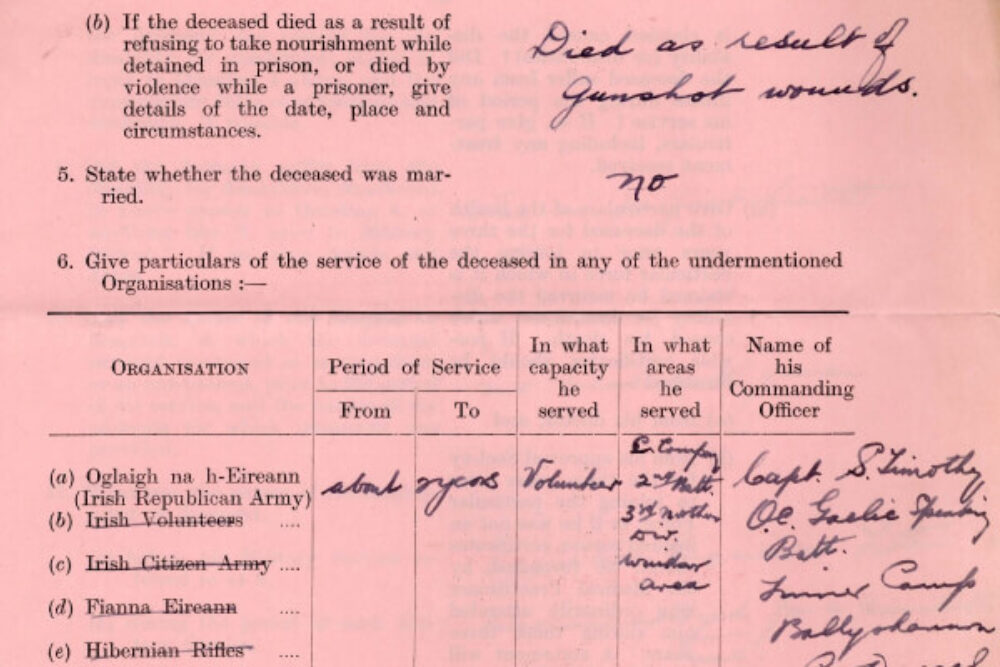 (b) If the deceased died as a result of
refusing to take nourishment while
detained in prison, or died by
violence while a prisoner, give
details of the date, place and
circumstances.
Died as result of
Gunshot wounds.
5. State whether the deceased was mar-
ried.
no
6. Give particulars of the service of the deceased in any of the undermentioned
Organisations :—
ORGANISATION
Period of Service
From
To
In what
capacity
he
served
In what
areas
he
served
Name of
his
Commanding
Officer
(a) Oglaigh na h-Eireann
(Irish Republican Army)
about
Volunteer
Company
2nd Batt.
3rd
area
Capt. S. Timothy
O.C. Gaelic Speaking
Batt.
Finner Camp
Ballyshannon
(b) Irish Volunteers ....
(c) Irish Citizen Army ....
(d) Fianna Eireann ....
(e) Hibernian Rifles ....